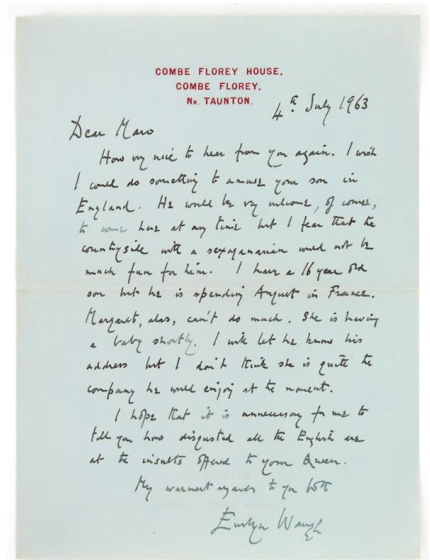 COMBE FLOREY HOUSE,
COMBE FLOREY,
NR. TAUNTON.
4th July 1963
Dear Maro
How very nice to hear from you again. I wish
I could do something to amuse your son in
England. He would be very welcome, of course,
to come here at any time but I fear that the
countryside with a sexagenarian would not be
much fun for him. I have a 16 year old
son but he is spending August in France.
Margaret, alas, can't do much. She is having
a baby shortly. I will let her know his
address but I don't think she is quite the
company he would enjoy at the moment.
I hope that it is unnecessary for me to
tell you how disgusted all the English are
at the insults offered to your Queen.
My warmest regards to you both
Evelyn Waugh